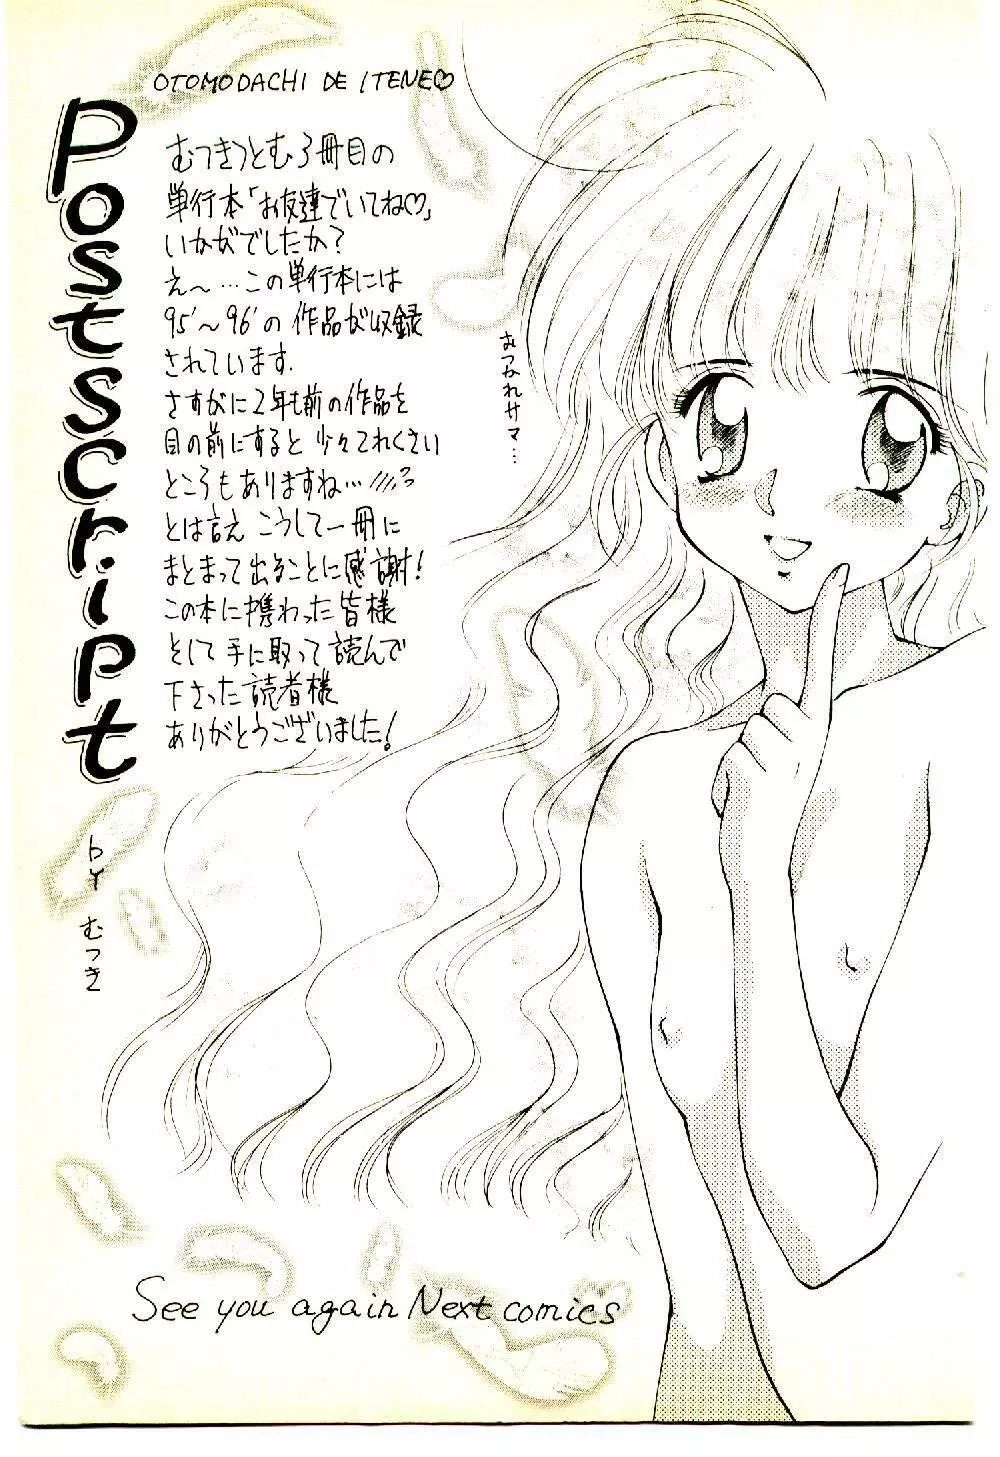 OTOMODACHI DE ITENE♡
Postscript
むつきつとむ3冊目の
単行本「お友達でいてね♡」
いかがでしたか?
え〜…この単行本には
95'〜96'の作品が収録
されています.
さすがに2年も前の作品を
目の前にすると少々てれくさい
ところもありますね…
とは言えこうして一冊に
まとまって出ることに感謝!
この本に携わった皆様
そして手に取って読んで
下さった読者様
ありがとうございました!
おつかれサマ…
by むつき
See you again Next comics